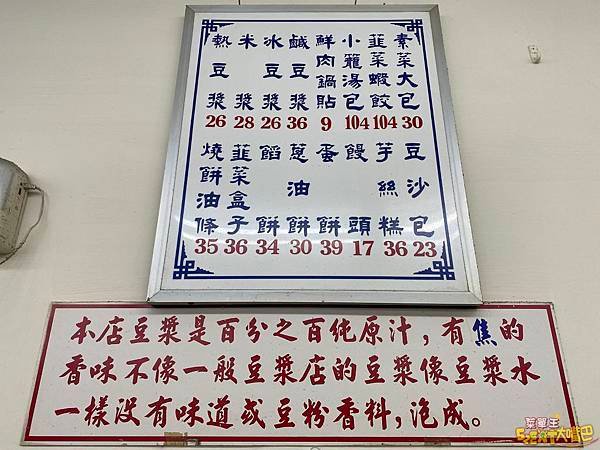 素菜大包 30
韮菜蝦餃 104
小籠湯包 104
鮮肉鍋貼 9
鹹豆漿 36
冰豆漿 26
米漿 28
熱豆漿 26
豆沙包 23
芋絲糕 36
饅頭 17
蛋餅 39
蔥油餅 30
餡餅 34
韮菜盒子 36
燒餅油條 35
本店豆漿是百分之百純原汁，有焦的
香味不像一般豆漿店的豆漿像豆漿水
一樣沒有味道或豆粉香料，泡成。
菜單王
大嘴巴